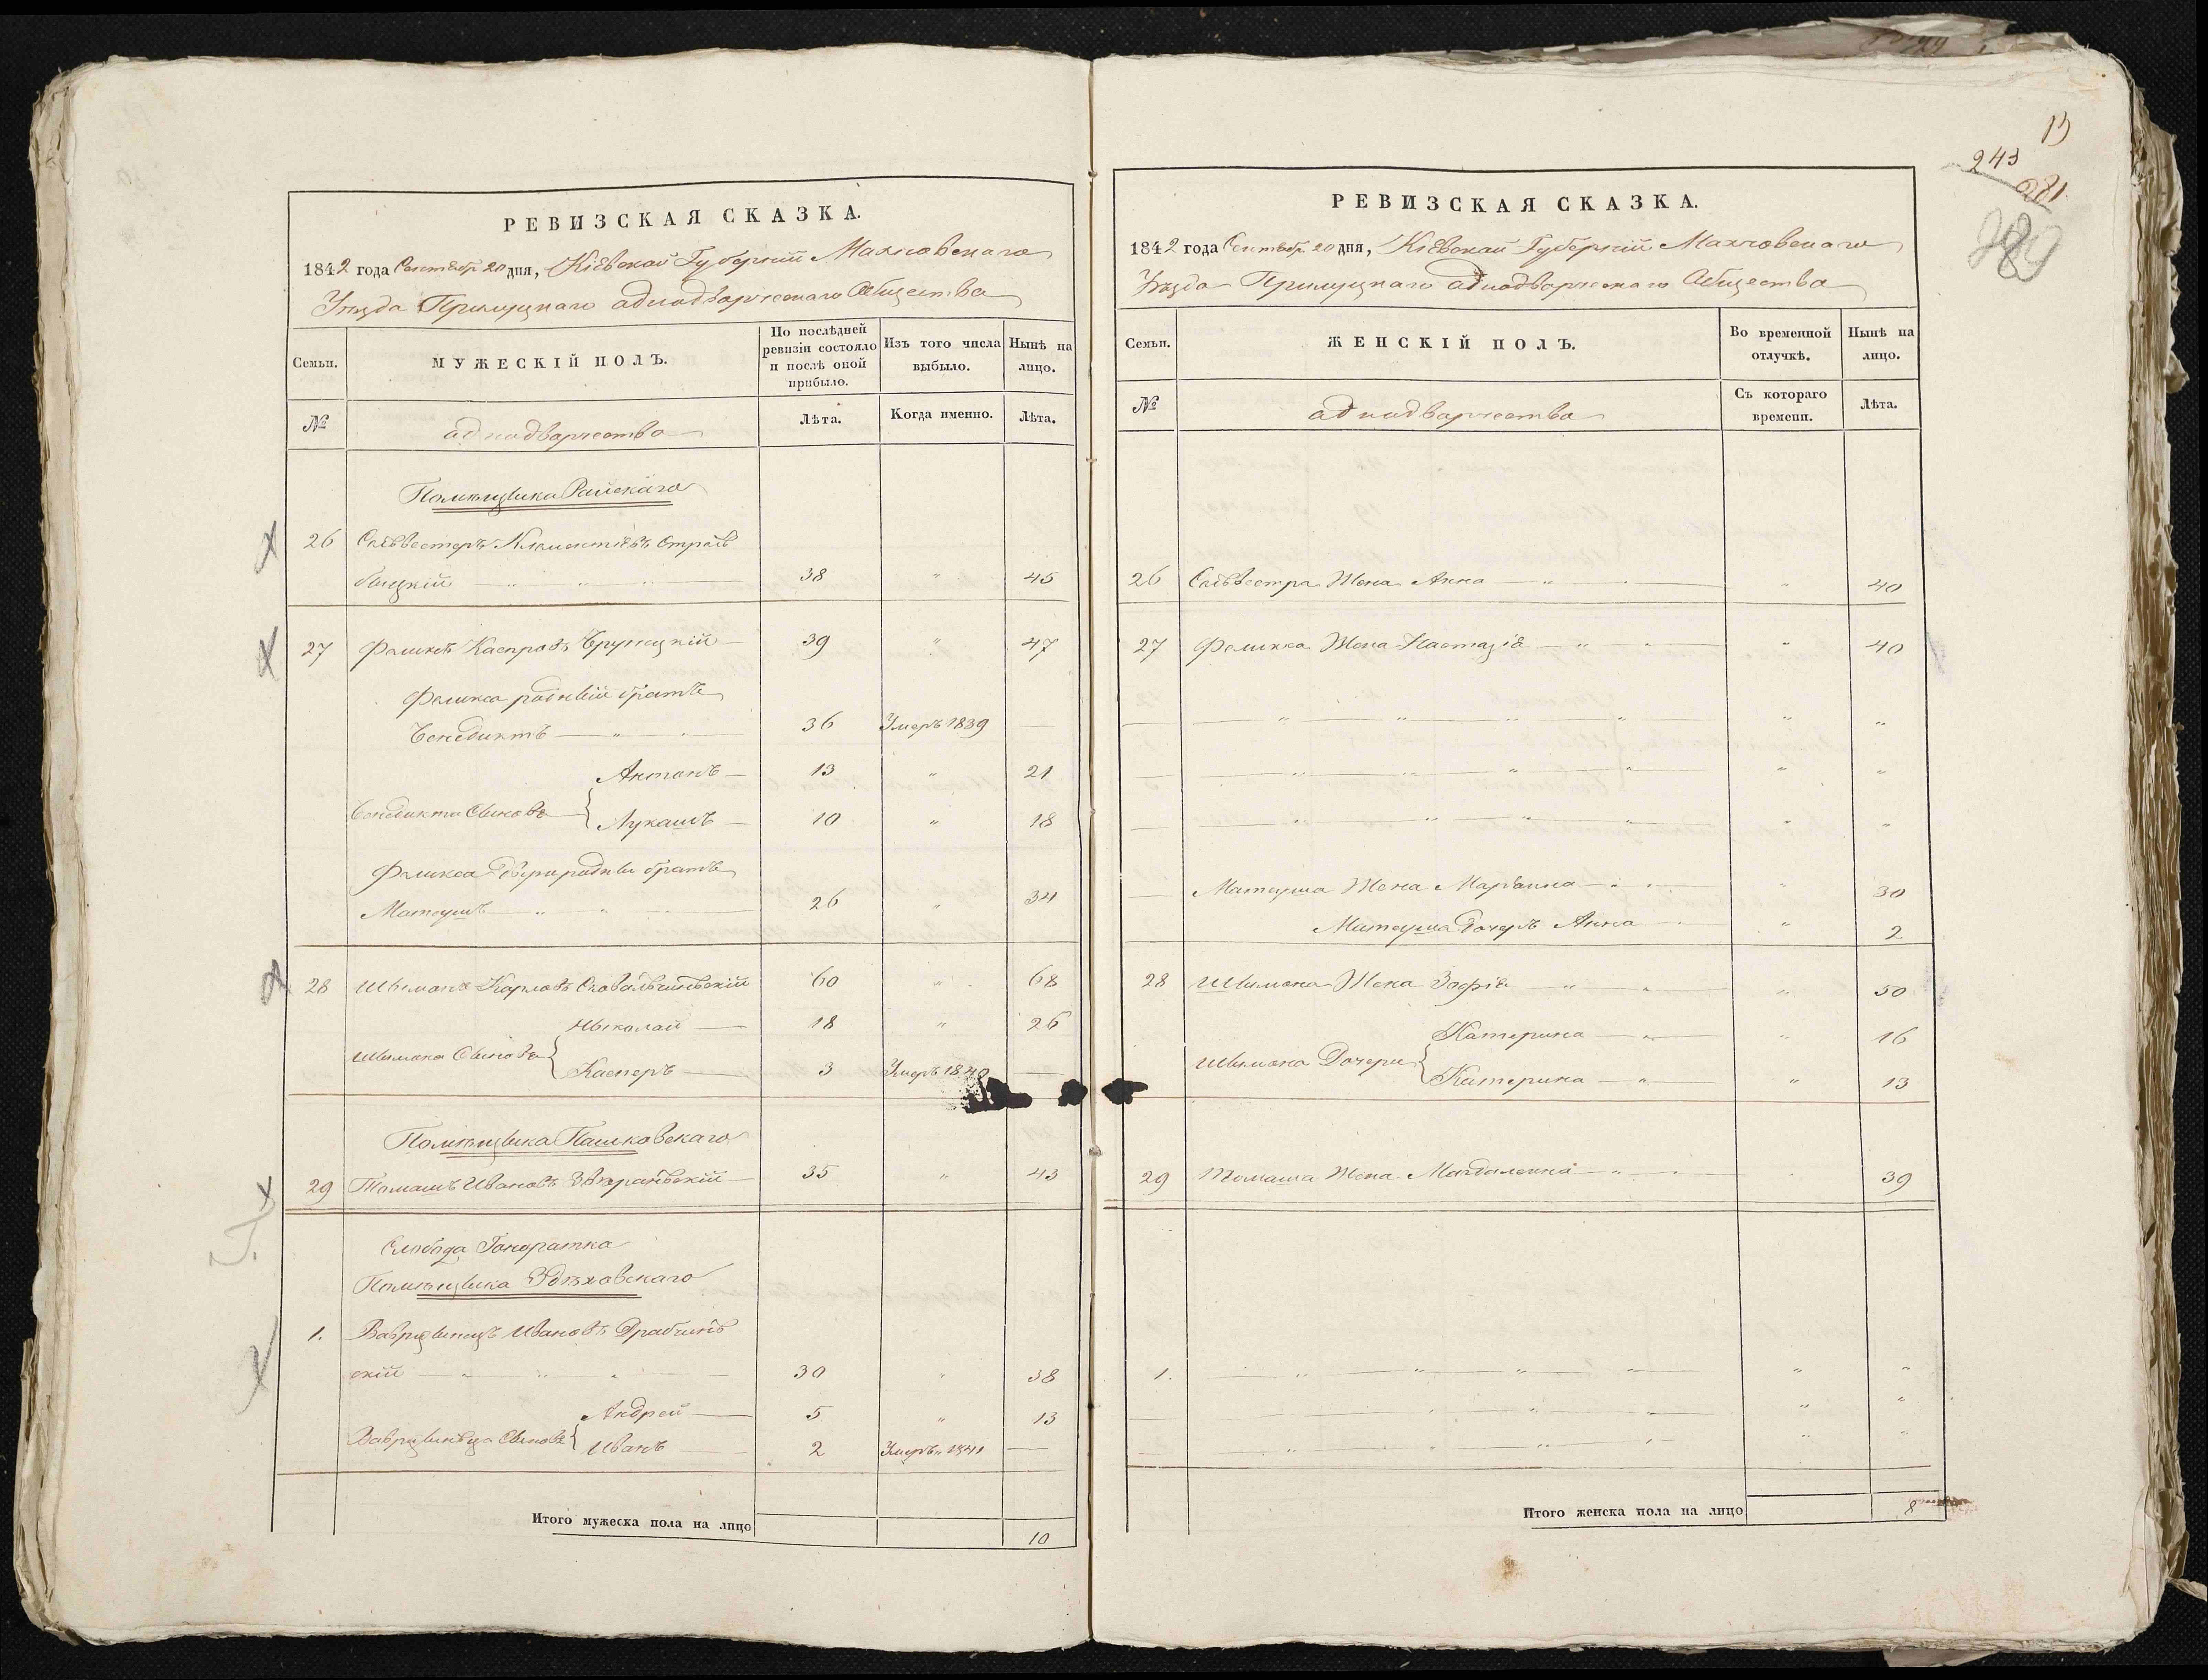 РЕВИЗСКАЯ СКАЗКА.
1842 года Сентебр. 20 дня, Кіевской Губерніи Махновскаго
Уезда Прилуцкаго аднодворческаго Общества
Семьи.
МУЖЕСКІЙ ПОЛЪ.
По послѣдней ревизіи состояло и послѣ оной прибыло.
Изъ того числа выбыло.
Нынѣ на лицо.
№
аднодварчества
Лѣта.
Когда именно.
Лѣта.
Помѣщика
26 Клементіевъ
38 " 45
27 Касправъ 39 " 47
Феликса родный братъ
Бенедиктъ 36 Умеръ 1839 —
Антонъ — 13 " 21
Бенедикта Сынове { Лукашъ — 10 " 18
Феликса братъ
Матеушъ 26 " 34
28 Шымонъ Карловъ 60 " 68
Мыколай — 18 " 26
Шымона Сынове { Касперъ — 3 Умеръ 1840 —
Помѣщика Пашковскаго
29 Томашъ Ивановъ 35 " 43
Слобода Гоноратка
Помѣщика Здѣховскаго
1. Ивановъ
скій 30 " 38
Андрей — 5 " 13
Сынове { Иванъ — 2 Умеръ 1841 —
Итого мужеска пола на лицо
10
13
243
281.
РЕВИЗСКАЯ СКАЗКА.
1842 года Сентебр. 20 дня, Кіевской Губерніи Махновскаго
Уезда Прилуцкаго аднодварческаго Общества
Семьи.
ЖЕНСКІЙ ПОЛЪ.
Во временной отлучкѣ.
Нынѣ на лицо.
№
аднодварчества
Съ котораго времени.
Лѣта.
26 Жена Анна " 40
27 Феликса Жена Настазія " 40
Матеуша Жена Марианна " 30
Матеуша Дочеръ Анна " 2
28 Шымона Жена Зофія " 50
Катерина " 16
Шымона Дочери { Катерина " 13
29 Томаша Жена Магдаленна 39
1.
Итого женска пола на лицо
8